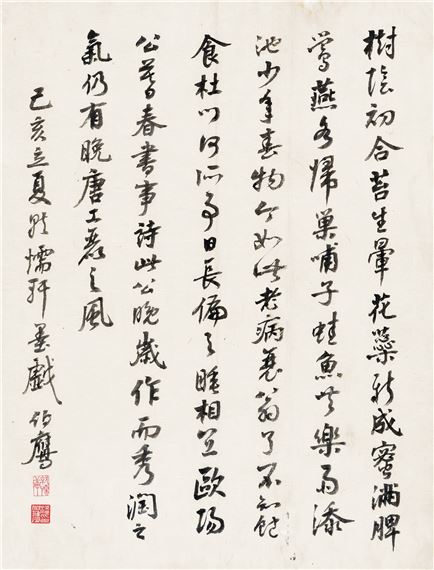 樹陰初合苔生暈花蘂新成蜜滿脾
鶯燕各歸巢哺子蛙魚共樂雨添
池少年春物今如此老病衰翁了不知飽
食杜門何所事日長偏與睡相宜歐陽
公暮春書事詩此公晚歲作而秀潤之
氣仍有晚唐工麗之風
己亥立夏墨戲伯鷹